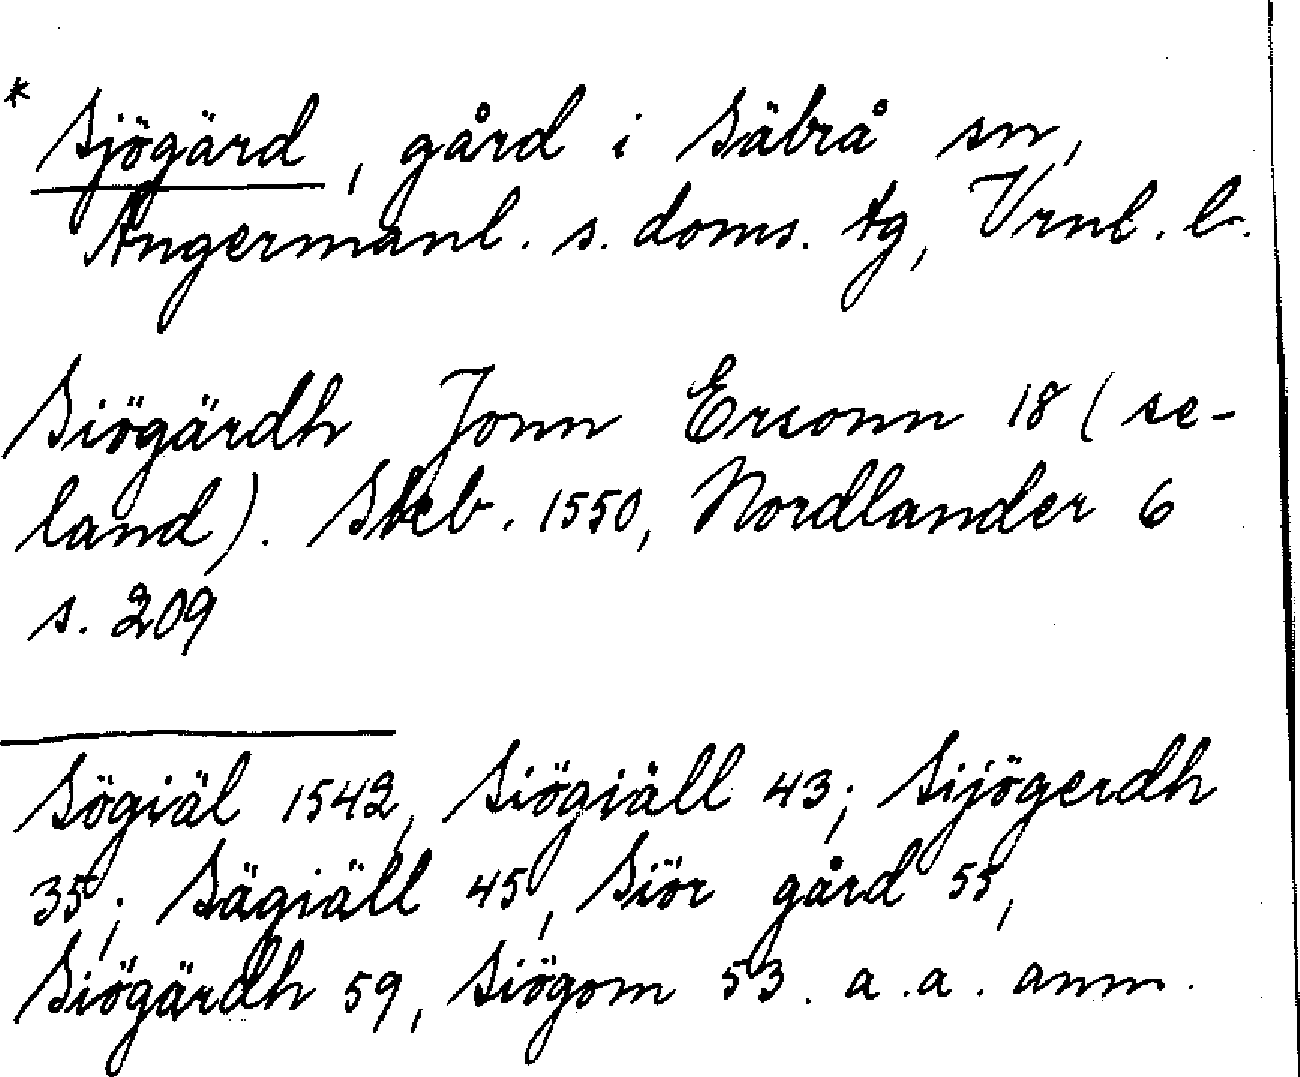 * Sjögärd, gård i Säbrå sn,
Ångermanl. s. doms. tg, Vrnl. l.
Siögärdh Jonn Ersonn 18 (se-
land). Skeb. 1550, Nordlander 6
s. 209
Sögiäl 1542, Siögiäll 43; Sijögerdh
35; Sägiäll 45, Siör gård 55,
Siögärdh 59, Siögom 53. a.a. anm.